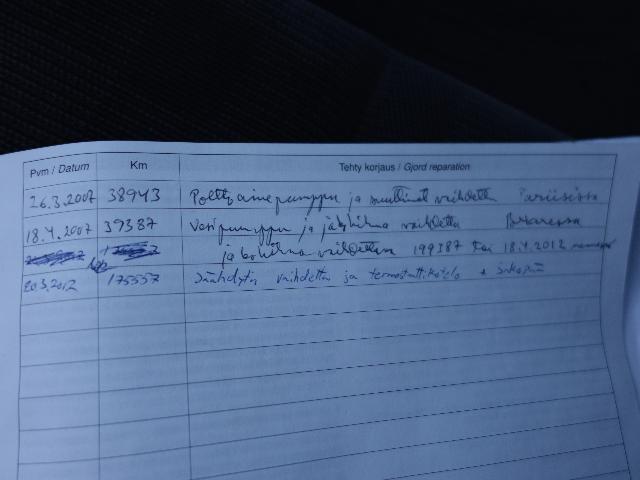 Pvm / Datum Km Tehty korjaus / Gjord reparation
26.3.2007 38943 Polttoainepumppu ja suuttimet vaihdettu Pariisissa
18.4.2007 39387 Vesipumppu ja jakohihna vaihdettu
jakohihna vaihdettava 199387 tai 18.4.2012 mennessä
20.3.2012 175557 Jäähdytin vaihdettu ja termostaattikotelo +